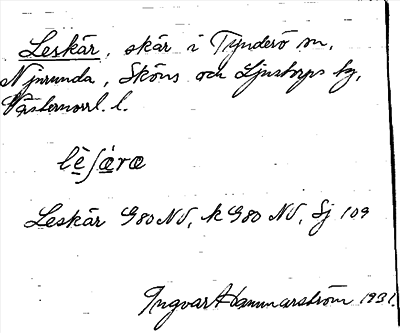 Leskär, skär i Tynderö sn,
Njurunda, Sköns och Ljustorps tg,
Västernorrl. l.
lèʃæ̀ræ
Leskär G80 NV, k G80 NV, Sj 109
Ingvar Hammarström 1931.